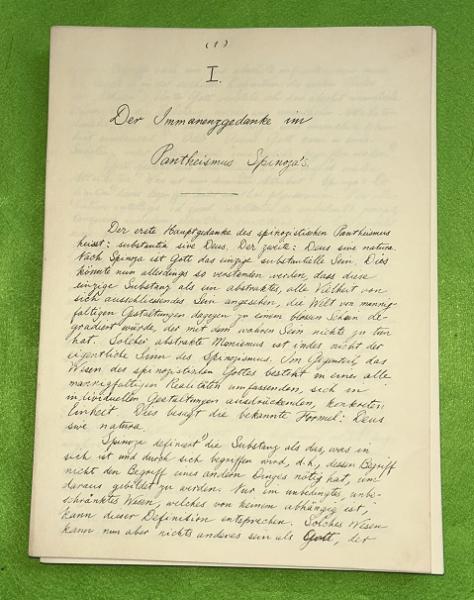 (1)
I.
Der Immanenzgedanke im
Pantheismus Spinoza's.
Der erste Hauptgedanke des spinozistischen Pantheismus
heisst: substantia sive Deus. Der zweite: Deus sive natura.
Nach Spinoza ist Gott das einzige substantielle Sein. Dies
könnte nun allerdings so verstanden werden, dass diese
einzige Substanz als ein abstraktes, alle Vielheit von
sich ausschliessendes Sein angesehen, die Welt der mannig-
faltigen Gestaltungen dagegen zu einem blosen Schein de-
gradiert würde, der mit dem wahren Sein nichts zu tun
hat. Solcher abstrakte Monismus ist indes nicht der
eigentliche Sinn des Spinozismus. Im Gegenteil, das
Wesen des spinozistischen Gottes besteht in einer alle
mannigfaltigen Realitäten umfassenden, sich in
individuellen Gestaltungen ausdrückenden, konkreten
Einheit. Dies besagt die bekannte Formel: Deus
sive natura.
Spinoza definiert die Substanz als das, was in
sich ist und durch sich begriffen wird, d.h., dessen Begriff
nicht den Begriff eines andern Dinges nötig hat, um
daraus gebildet zu werden. Nur ein unbedingtes, unbe-
schränktes Wesen, welches von keinem abhängig ist,
kann dieser Definition entsprechen. Solches Wesen
kann nun aber nichts anderes sein als Gott, der